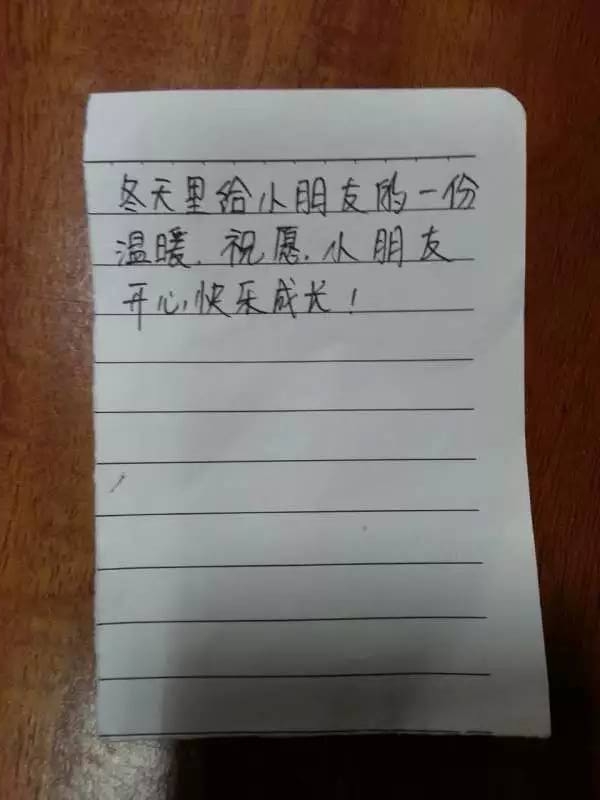 冬天里给小朋友的一份
温暖.祝愿.小朋友
开心快乐成长！